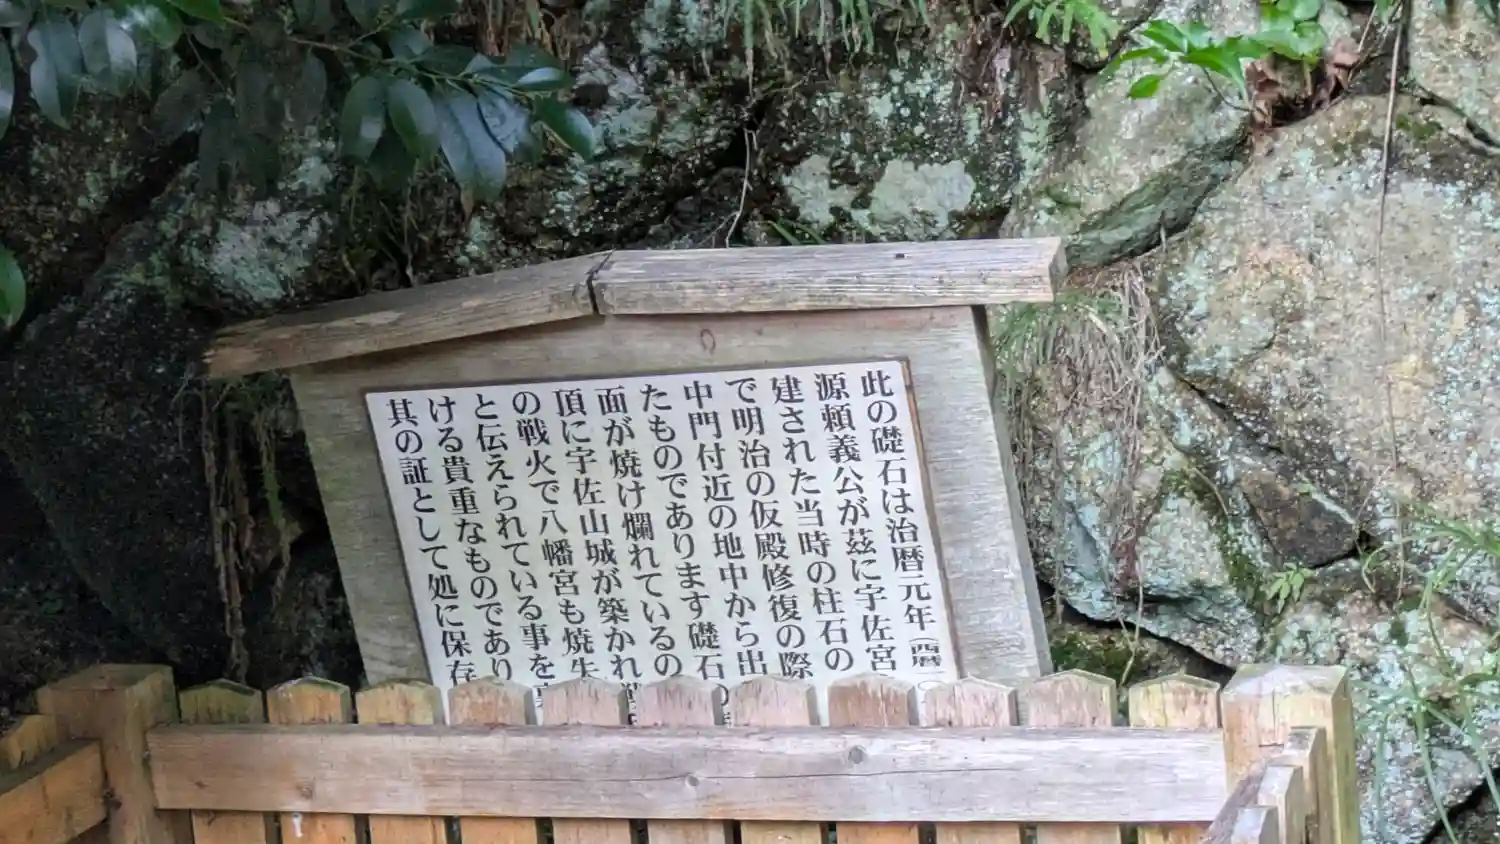 此の礎石は治暦元年(西暦一〇
源頼義公が茲に宇佐宮
建された当時の柱石の
で明治の仮殿修復の際
中門付近の地中から出
たものであります礎石の
面が焼け爛れているの
頂に宇佐山城が築かれ
の戦火で八幡宮も焼失
と伝えられている事を
ける貴重なものであり
其の証として処に保存